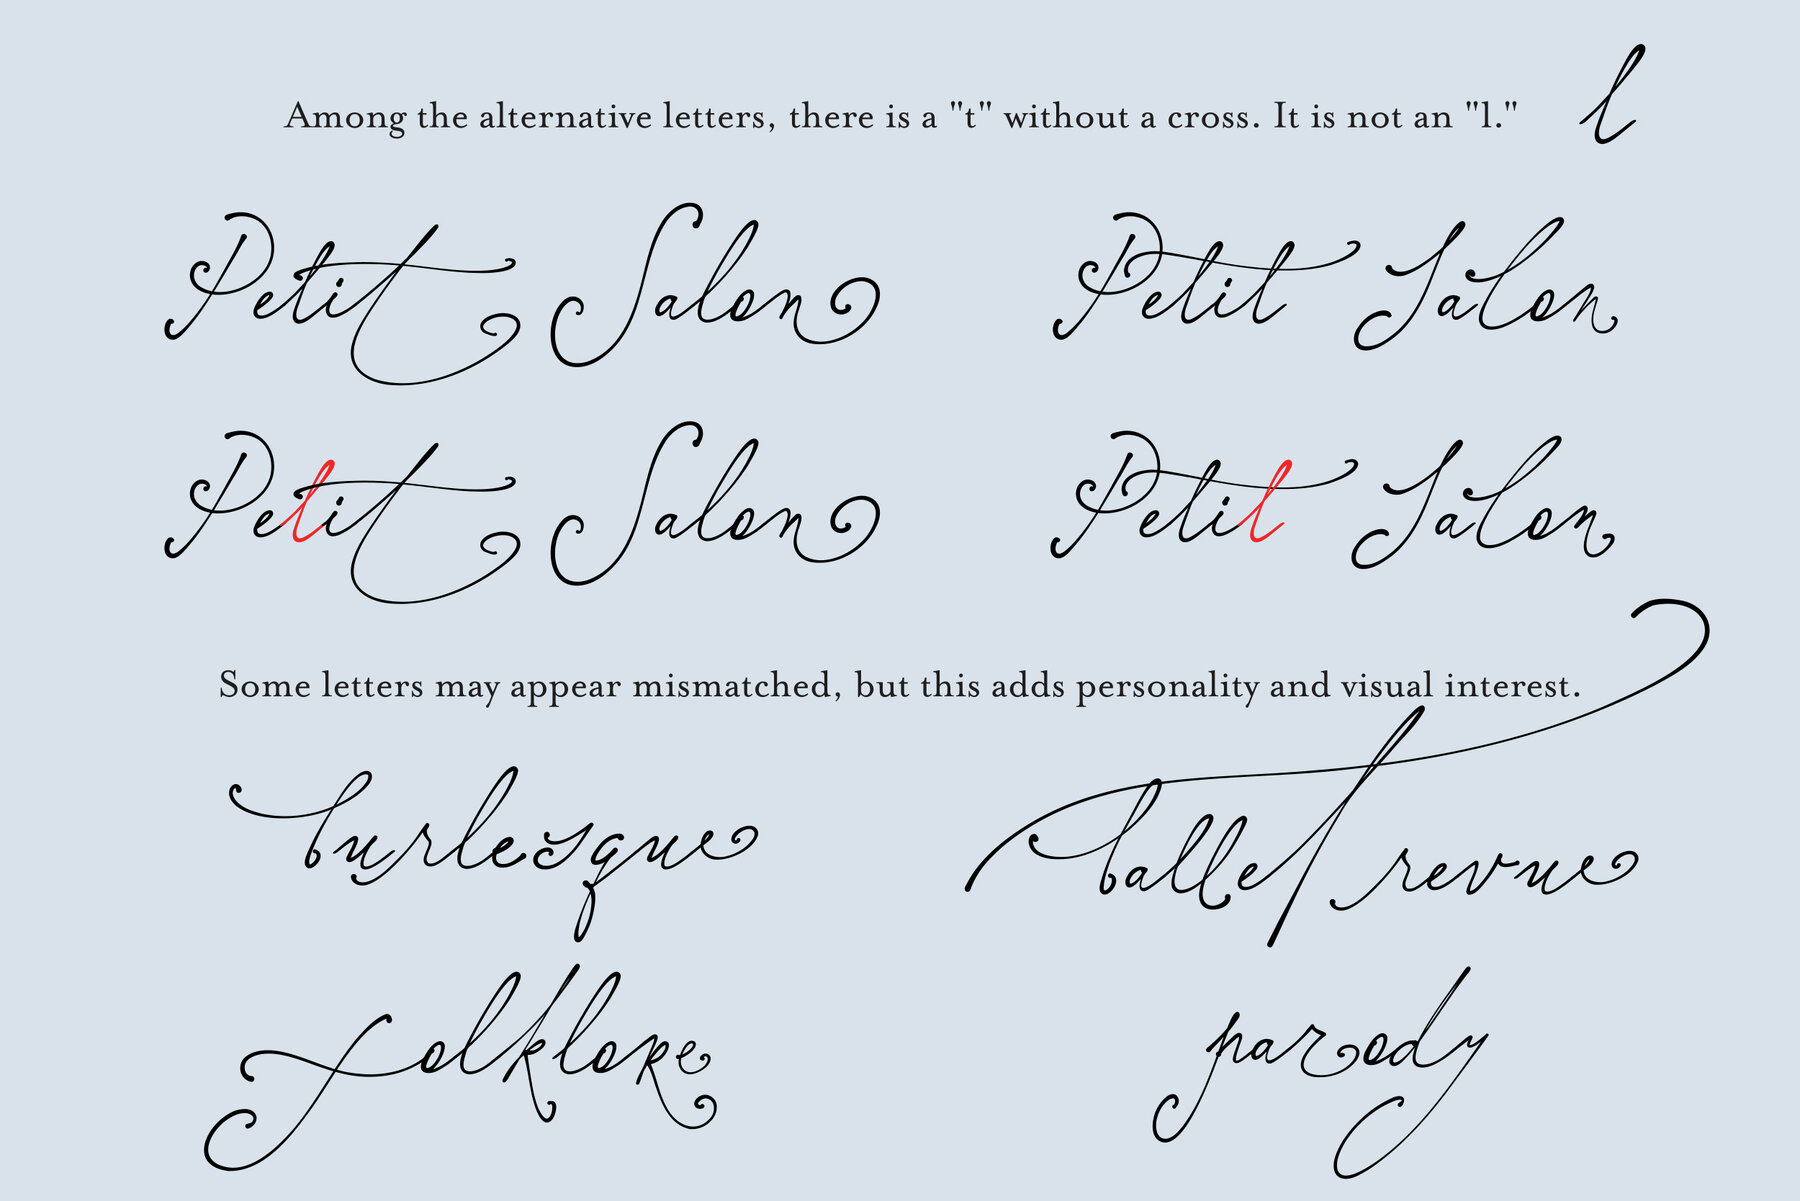 Among the alternative letters, there is a "t" without a cross. It is not an "l." t
Petit Salon Petit Salon
Petit Salon Petit Salon
Some letters may appear mismatched, but this adds personality and visual interest.
burlesque ballet revue
folklore parody